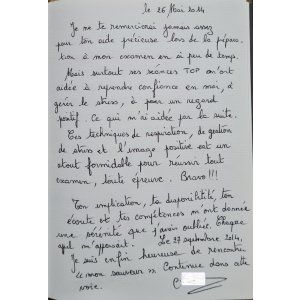 le 26 Mai 2014
Je ne te remercierai jamais assez
pour ton aide précieuse lors de la prépara
tion à mon examen en si peu de temps.
Mais surtout ses séances TOP qui m'ont
aidée à reprendre confiance en moi, à
gérer le stress, à poser un regard
positif. Ce qui m'a aidée par la suite.
Ces techniques de respiration, de gestion
de stress et l'image positive est un
atout formidable pour réussir tout
examen, toute épreuve. Bravo!!!
Ton implication, ta disponibilité, ton
écoute et tes compétences m'ont donnée
une sérénité que j'avais oubliée. Chaque
qui m'apaisait. Le 27 septembre 2014,
Je suis enfin heureuse de rencontrer
"mon sauveur". Continue dans cette
voie.